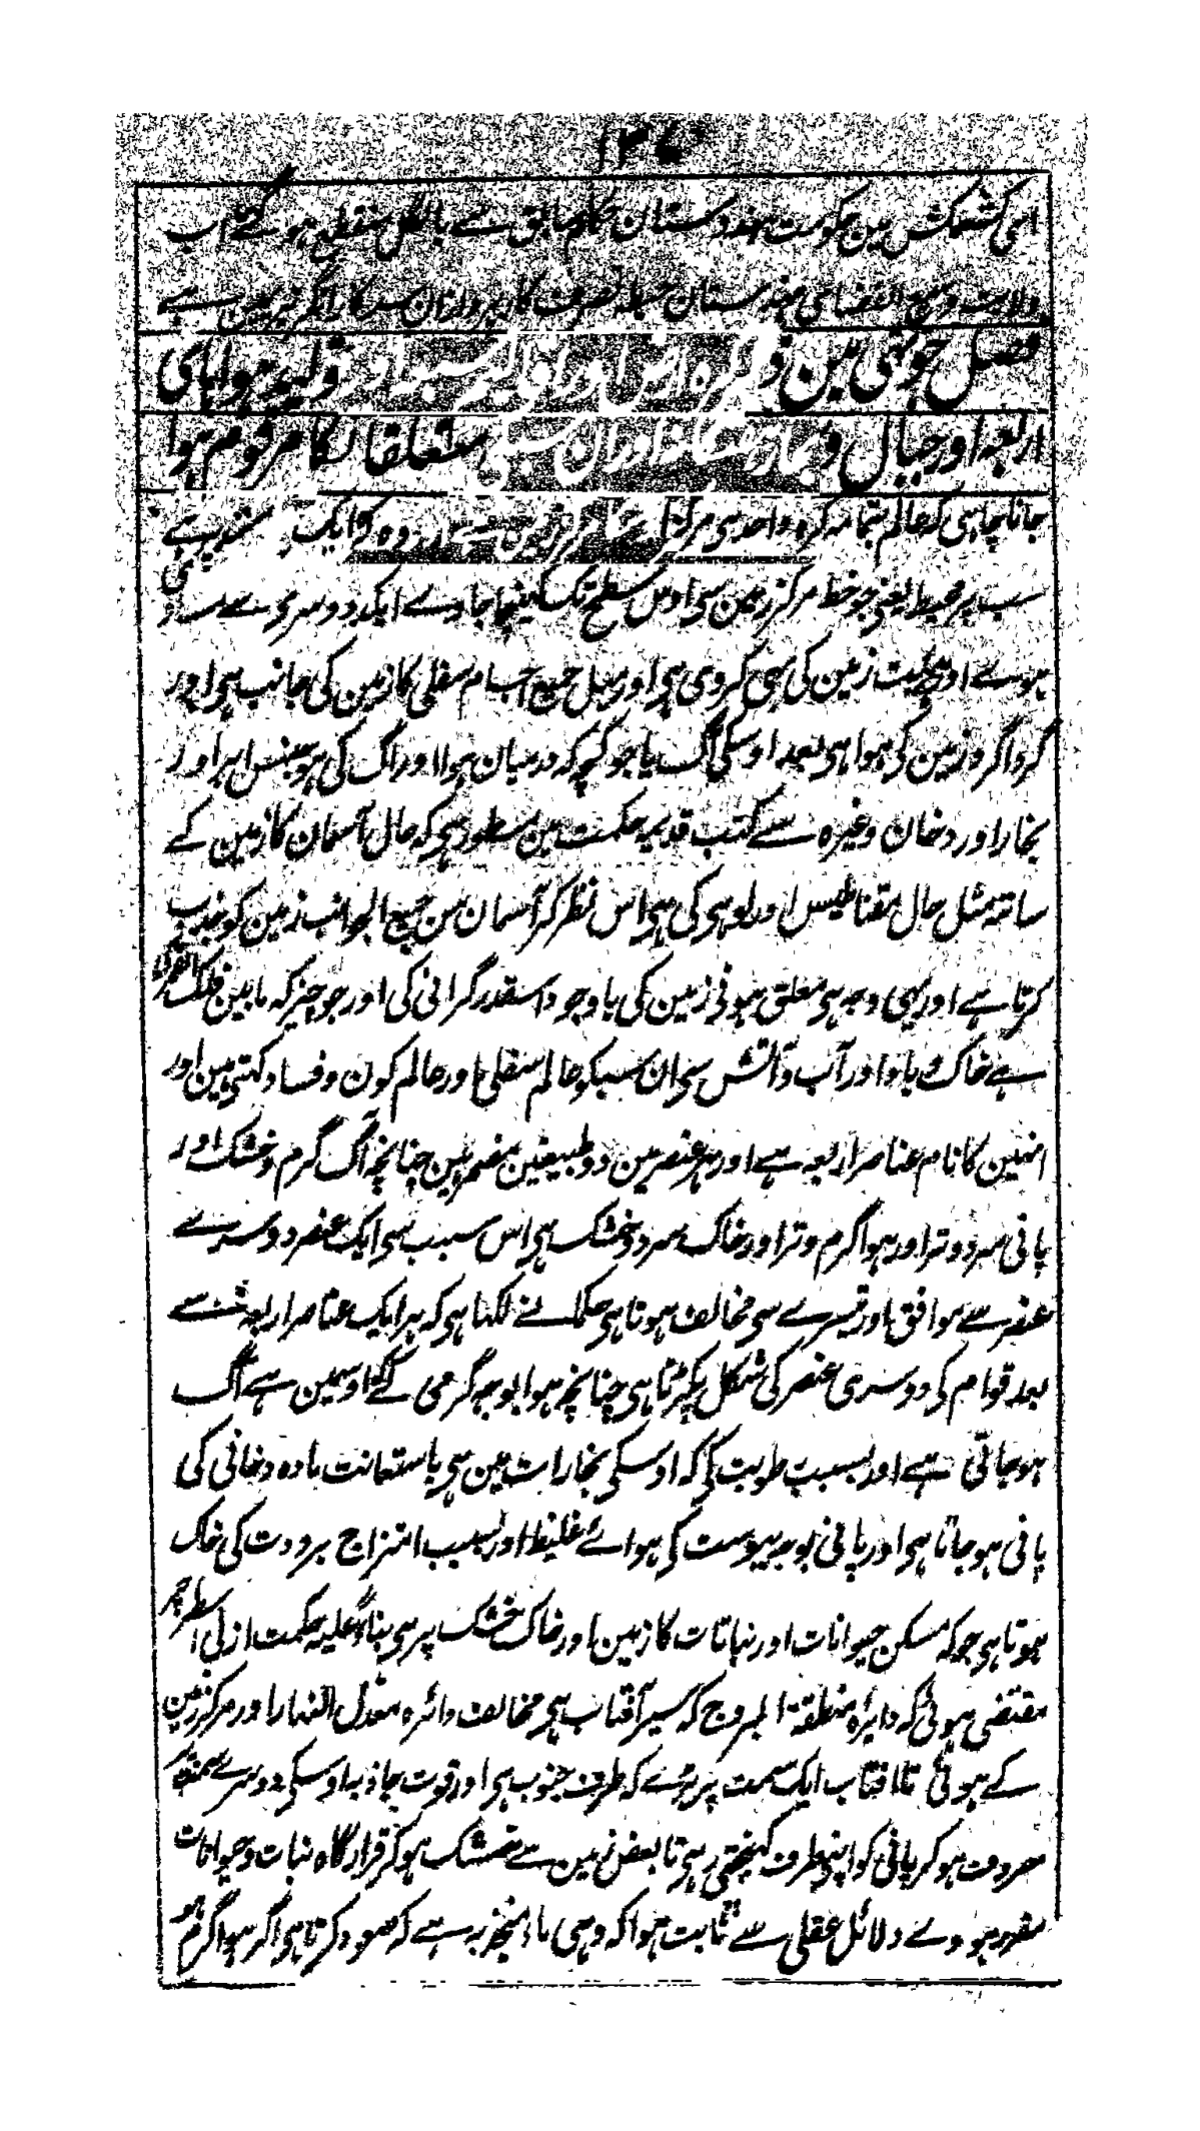 ۱۳۷
اسی کشمکش مین حکومت ہندوستان حکام سابق سے بالکل منقطع ہو گئے اب
ولایت وسیع الفضای ہندوستان تصرف کارپردازان سرکار انگریز مین ہے
فصل چوتھی مین ہوا ہای
اربعہ اور جبال و متعلقات کا مرقوم ہوا
جانا چاہی کہ عالم بتمامہ کرہ واحد ہی مرکز زمین ہے ایک ہے
سب پر محیط یعنی جو خط مرکز زمین سی اوس سطح تک کھینچا جاوے ایک دوسری سے مساوی
ہووے اور ہیئت زمین کی ہی کروی ہی اور میل جمیع اجسام سفلی کا زمین کی جانب ہی اور
گرداگرد زمین کی ہوا ہی بعد اوسکی آگ یا جو کچھ کہ درمیان ہوا اور آگ کی ہو جنس ابر اور
بخار اور دخان وغیرہ سے کتب قدیمہ حکمت مین مسطور ہی کہ حال آسمان کا زمین کے
ساتہ مثل حال مقناطیس اور لوہی کی ہی اس نظر کر آسمان من جمیع الجوانب زمین کو جذب
کرتا ہے اور یہی وجہ ہی معلق ہونی زمین کی باوجود اسقدر گرانی کی اور جو چیز کہ مابین فلک القمر کی
ہے خاک و باد اور آب و آتش سی ان سبکو عالم سفلی اور عالم کون و فساد کہتی ہین اور
انہین کا نام عناصر اربعہ ہے اور ہر عنصر مین دو طبیعتین مضمر ہین چنانچہ آگ گرم و خشک اور
پانی سرد و تر اور ہوا گرم و تر اور خاک سرد و خشک ہی اس سبب سی ایک عنصر دوسرے
عنصر سے موافق اور تیسرے سی مخالف ہوتا ہی حکما نے لکہا ہی کہ ہر ایک عناصر اربعہ سے
بعد قوام کی دوسری عنصر کی شکل پکڑتا ہی چنانچہ ہوا بوجہ گرمی کے کہ اوسمین ہے آگ
ہو جاتی ہے اور بسبب رطوبت کی کہ اوسکی بخارات مین ہی باستعانت مادہ دخانی کی
پانی ہو جاتا ہی اور پانی بوجہ یبوست کی ہوائے غلیظ اور بسبب امتزاج برودت کی خاک
ہوتا ہی جو کہ مسکن حیوانات اور نباتات کا زمین اور خاک خشک پر ہی بناءً علیہ حکمت ازلی اسطرحپر
مقتضی ہوئی کہ دایرہ منطقۃ البروج کہ سیر آفتاب ہی مخالف دائرہ معدل النہار اور مرکز زمین
کے ہوئی تا آفتاب ایک سمت پر پڑے کہ طرف جنوب ہی اور قوت جاذبہ اوسکی دوسرے سمت
مصروف ہو کر پانی کو اپنی طرف کھینچتی رہی تا بعض زمین سے خشک ہو کر قرارگاہ نبات و حیوانات
مقرر ہووے دلائل عقلی سے ثابت ہوا کہ وہی ماء منجذبہ ہے کہ صعود کرتا ہی اگر ہوا گرم ہو